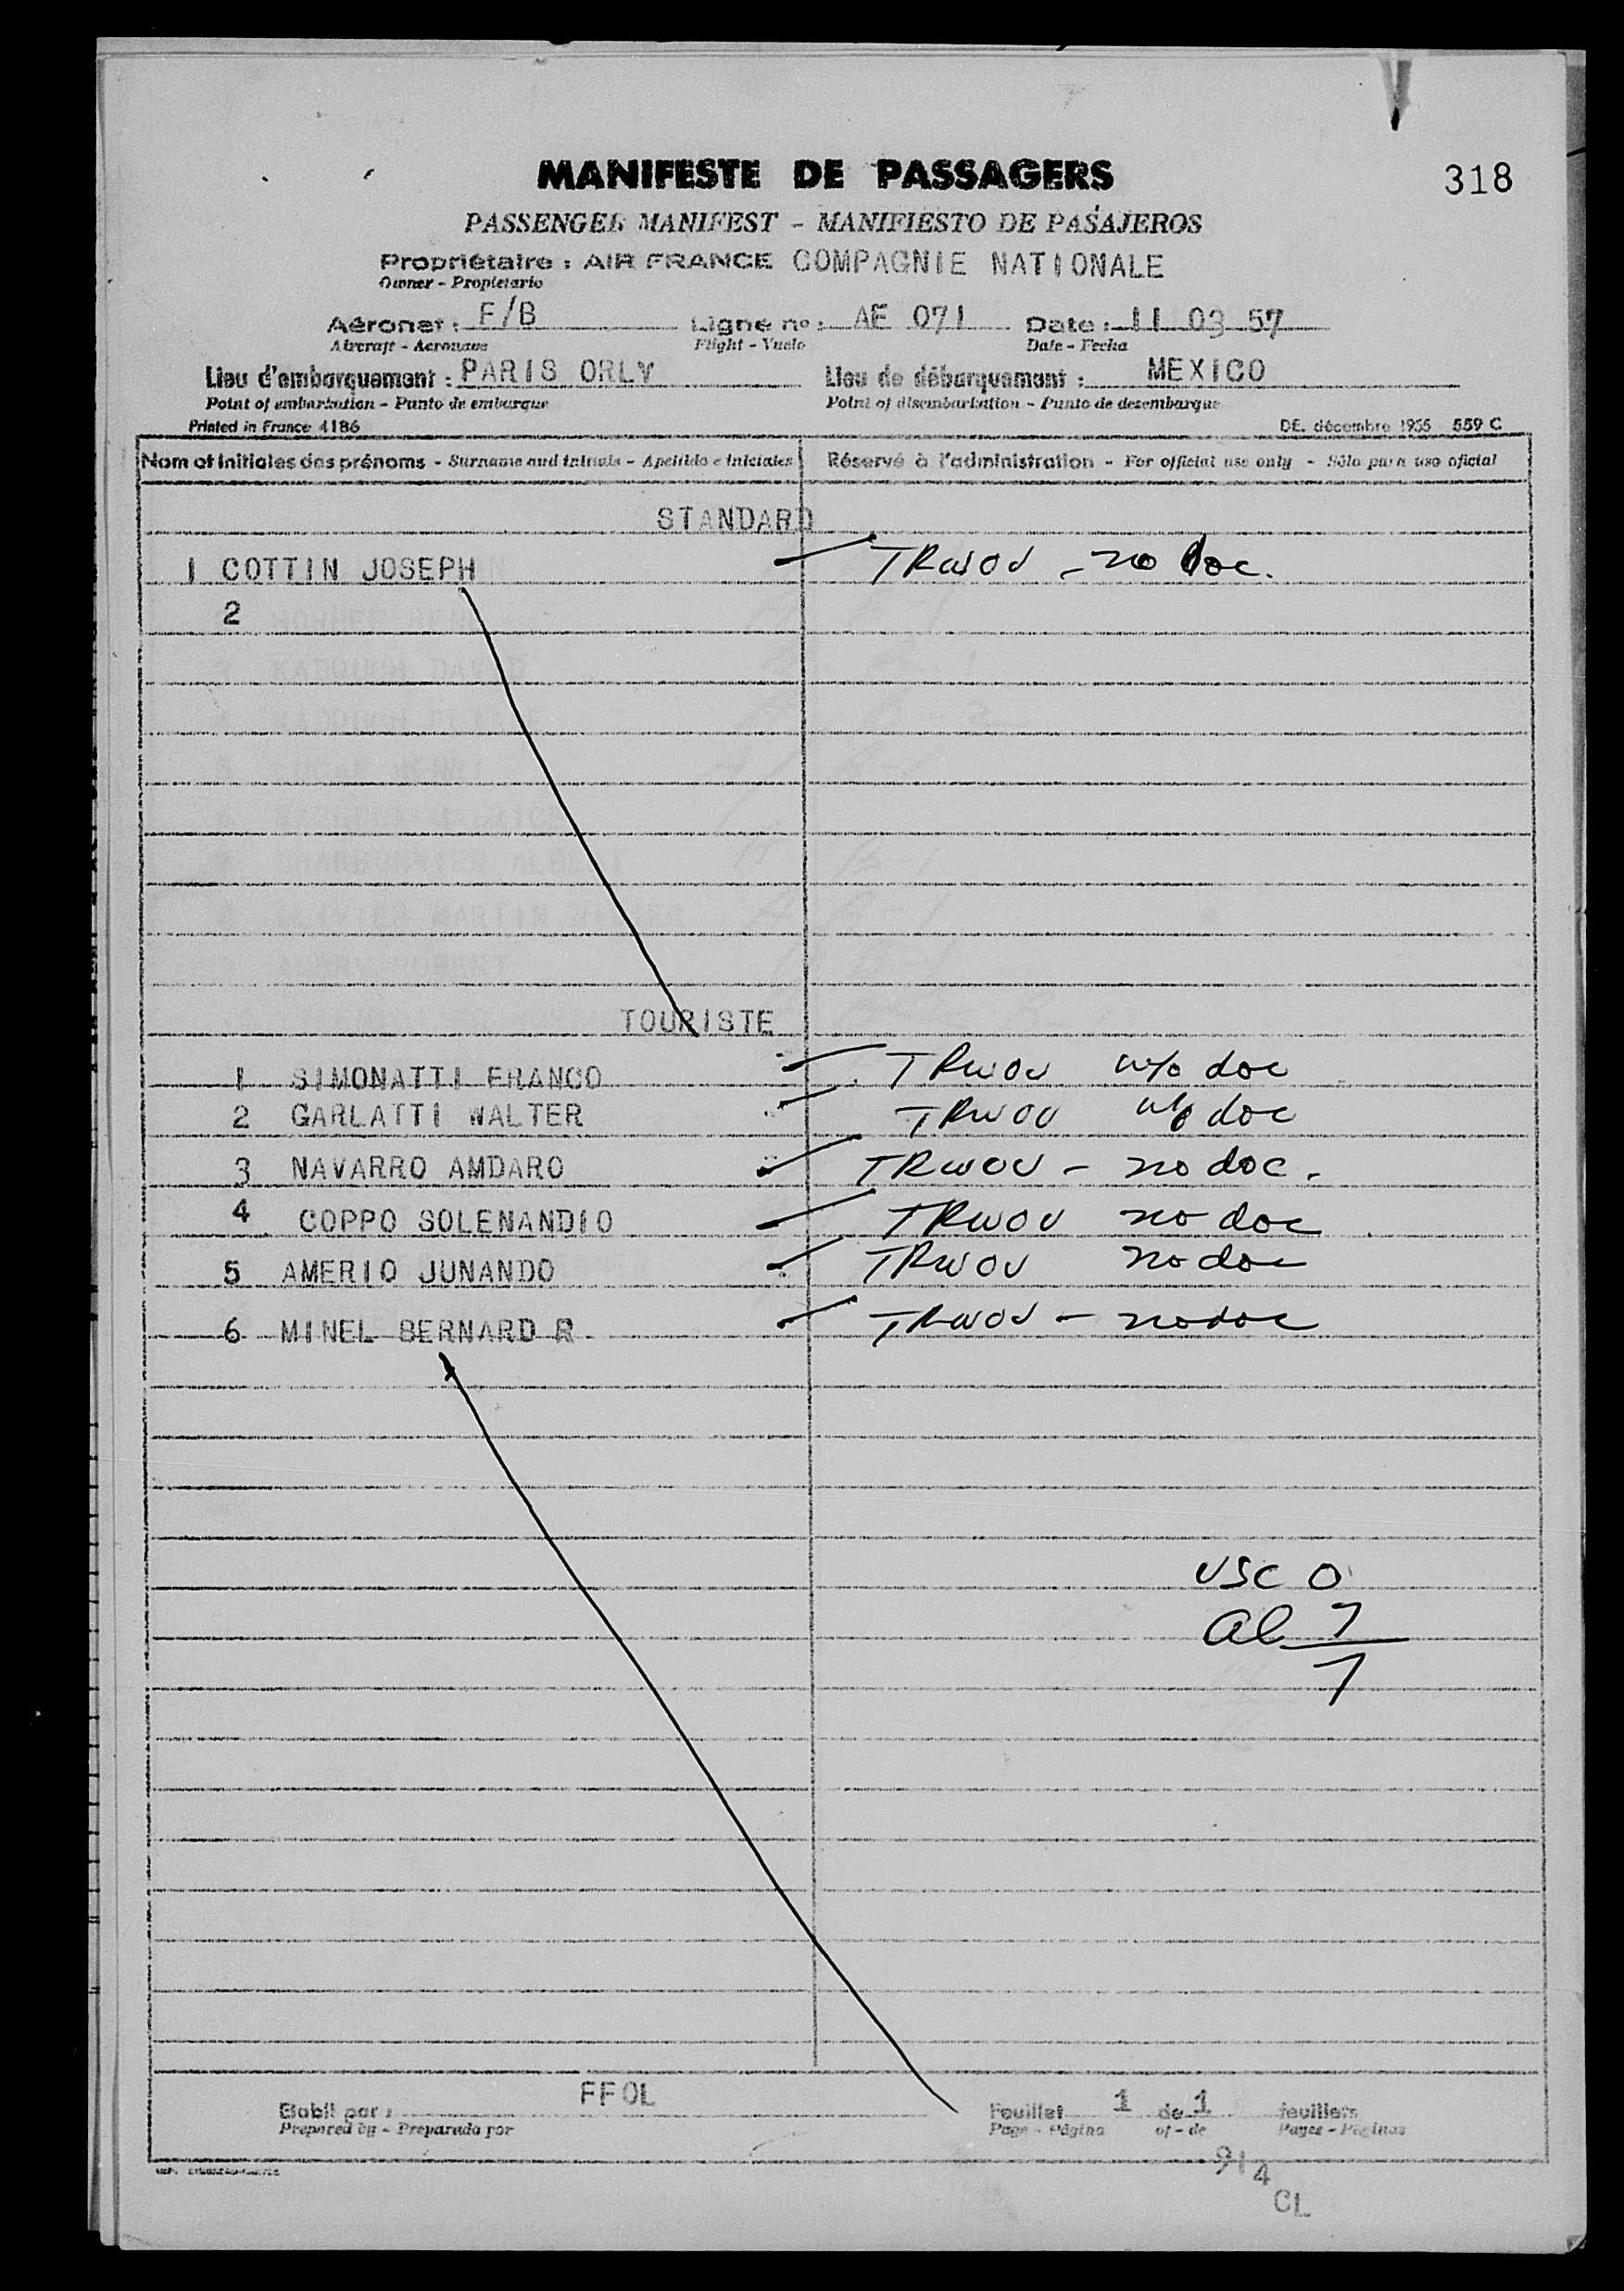 318
MANIFESTE DE PASSAGERS
PASSENGER MANIFEST - MANIFIESTO DE PASAJEROS
Propriétaire : AIR FRANCE COMPAGNIE NATIONALE
Owner - Propietario
Aéronef : F/B Ligne nº : AE 071 Date : 11 03 57
Aircraft - Aeronave Flight - Vuelo Date - Fecha
Lieu d'embarquement : PARIS ORLY Lieu de débarquement : MEXICO
Point of embarkation - Punto de embarque Point of disembarkation - Punto de desembarque
Printed in France 4186 DE. décembre 1955 559 C
Nom et initiales des prénoms - Surname and initials - Apellido e iniciales Réservé à l'administration - For official use only - Sólo para uso oficial
STANDARD
1 COTTIN JOSEPH TRWOV - no doc.
2
TOURISTE
1 SIMONATTI FRANCO TRWOV w/o doc
2 GARLATTI WALTER TRWOV w/o doc
3 NAVARRO AMDARO TRWOV - no doc.
4 COPPO SOLENANDIO TRWOV no doc
5 AMERIO JUNANDO TRWOV no doc
6 MINEL BERNARD R TRWOV - no doc
USC 0
al 7
7
Etabli par : FFOL Feuillet 1 de 1 feuillets
Prepared by - Preparado por Page - Página of - de Pages - Páginas
914
CL